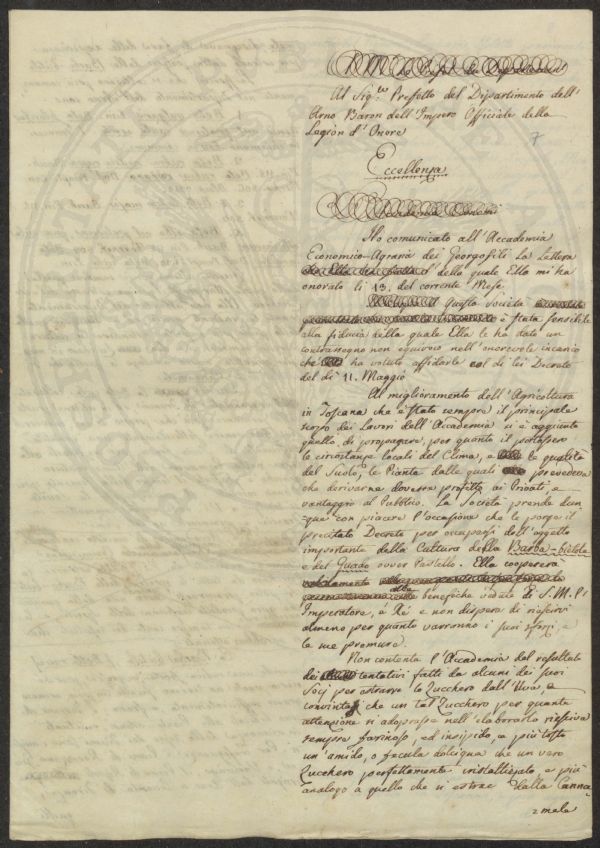 Al Sig.re Prefetto del Dipartimento dell'
Arno Baron dell'Impero Officiale della
Legion d'Onore
7
Eccellenza
Ho comunicato all'Accademia
Economico-Agraria dei Georgofili La Lettera
della quale Ella mi ha
onorato li 13. del corrente Mese.
Questa Società
è stata sensibile
alla fiducia della quale Ella le ha dato un
contrassegno non equivoco nell'onorevole incarico
che ha voluto affidarle col di lei Decreto
del dì 11. Maggio
Al miglioramento dell'Agricoltura
in Toscana che è stato sempre il principale
scopo dei Lavori dell'Accademia si è aggiunto
quello di propagare, per quanto il portassero
le circostanze locali del Clima, e le qualità
del Suolo, le Piante dalle quali prevedeva
che derivarne dovesse profitto ai Privati, e
vantaggio al Pubblico. La Società prende dun-
que con piacere l'occasione che le porge il
precitato Decreto per occuparsi dell'oggetto
importante della Cultura della Barba-bietola
e del Guado ovver Pastello. Ella coopererà
alle benefiche vedute di S. M. l'
Imperatore, e Rè e non dispera di riescirvi
almeno per quanto varranno i suoi sforzi, e
le sue premure.
Non contenta l'Accademia del resultato
dei tentativi fatti da alcuni dei suoi
Socj per estrarre lo Zucchero dall'Uva, e
convinta che un tal Zucchero per quanta
attenzione si adoprasse nell'elaborarlo riesciva
sempre farinoso, ed insipido, e più tosto
un'amido, o fecula dolcigna che un vero
Zucchero perfettamente cristallizzato, e più
analogo a quello che si estrae dalla Canna-
mele